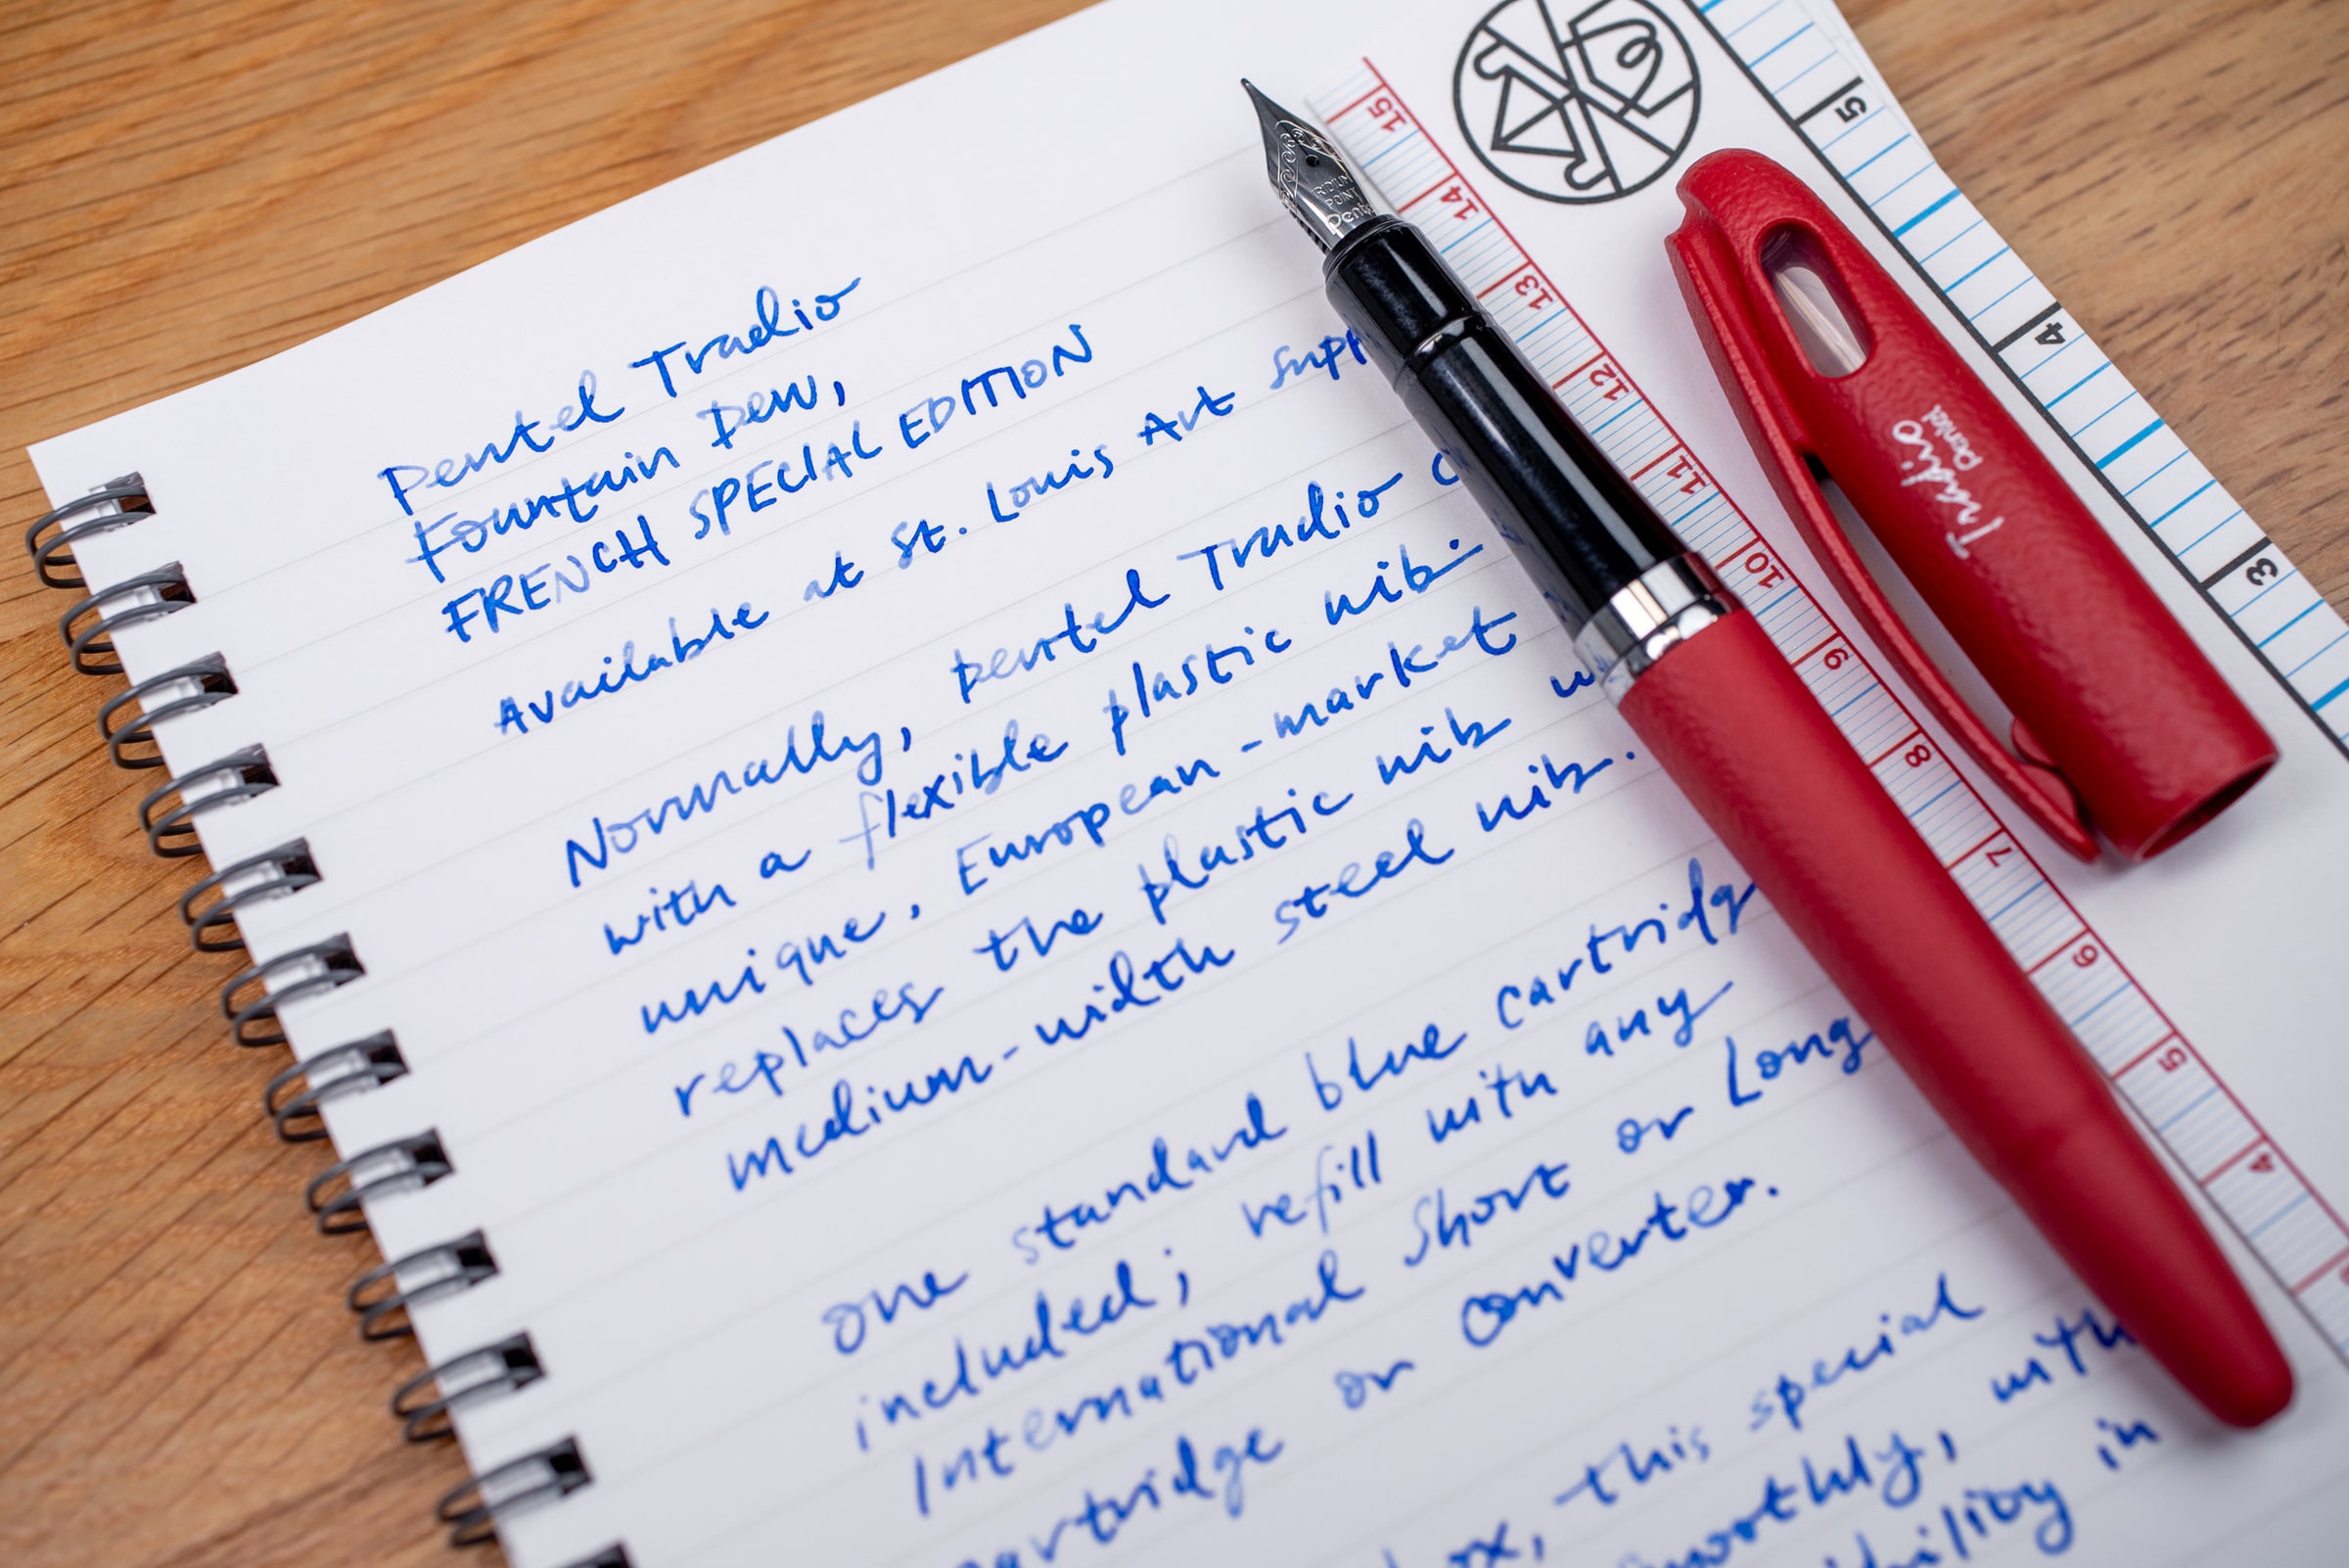 Pentel Tradio
Fountain Pen,
FRENCH SPECIAL EDITION
Available at St. Louis Art
Normally, Pentel Tradio
with a flexible plastic nib.
unique, European-market
replaces the plastic nib
medium-width steel nib.
One standard blue
included; refill with any
International Short or Long
cartridge or converter.
this special
with
in
IRIDIUM
POINT
Pentel
Tradio
Pentel
15
14
13
12
11
10
9
8
7
6
5
4
5
4
3